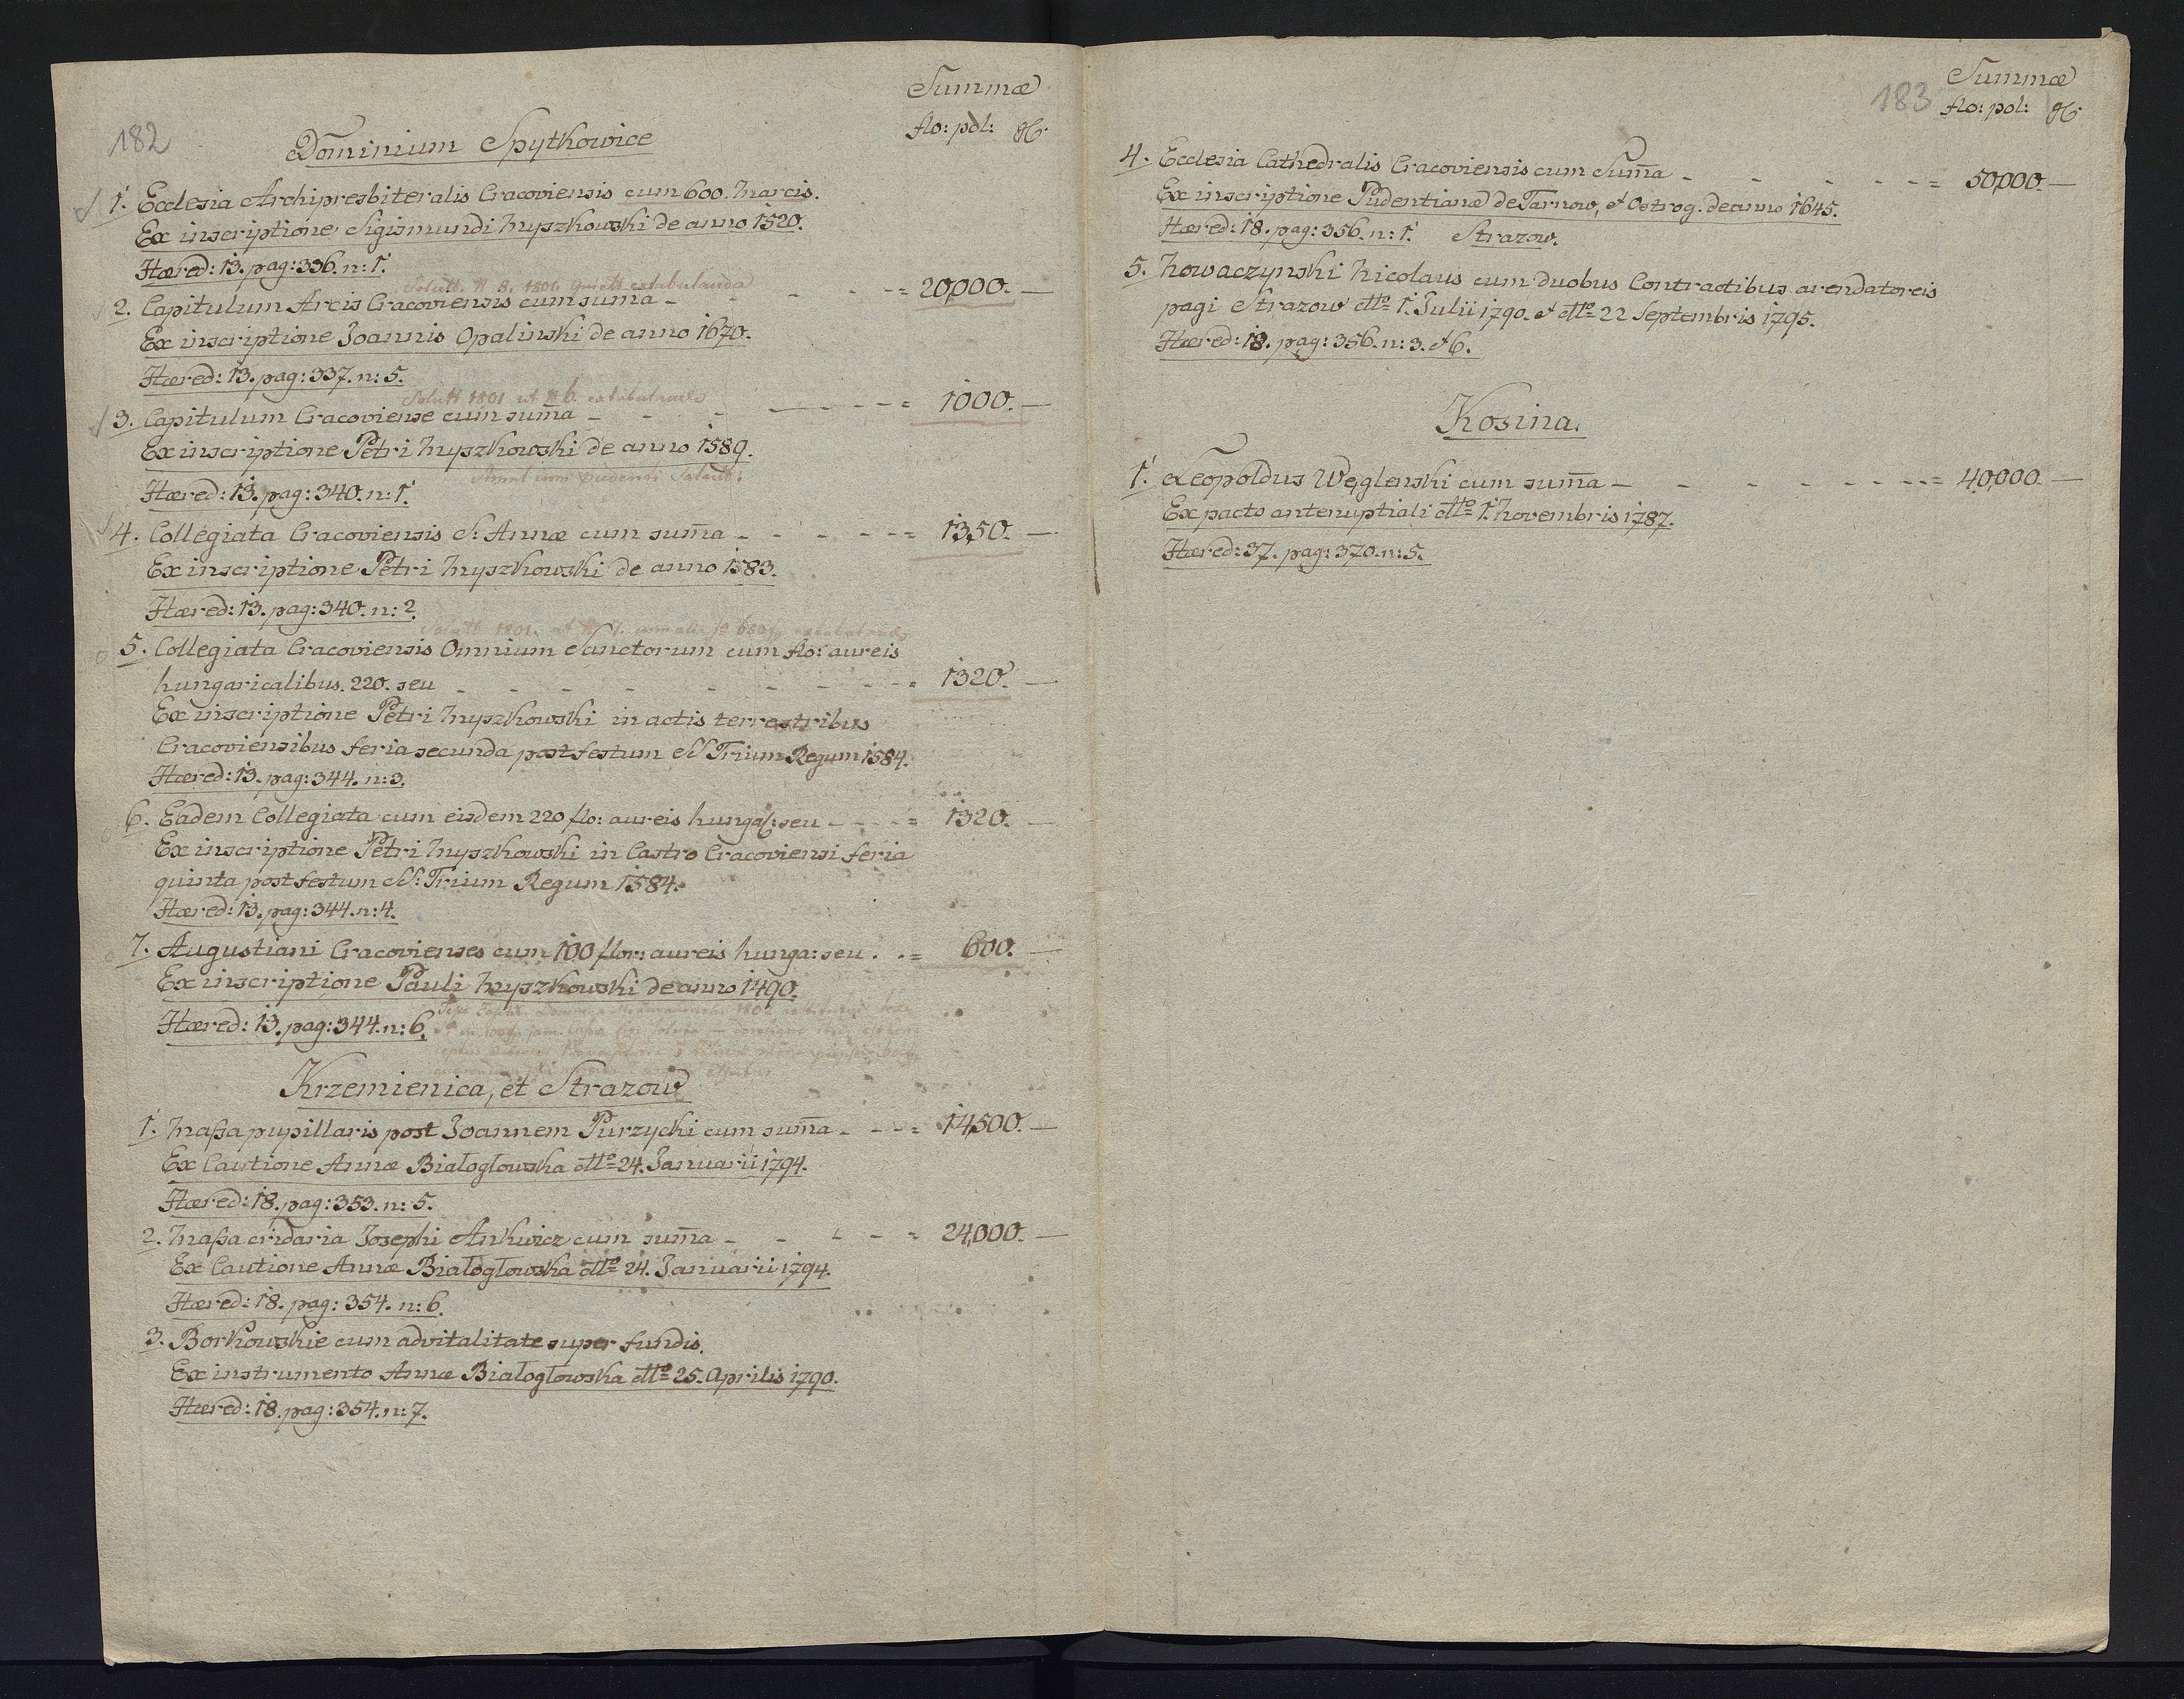 Summæ
182
flo: pol: gl.
Dominium Spytkowice
1. Ecclesia Archipresbiteralis Cracoviensis cum 600. Marcis.
Ex inscriptione Sigismundi Myszkowski de anno 1520.
Hæred: 13. pag: 336. n: 1.
Solutt. N 8. 1801. Quiett. extabulanda
2. Capitulum Arcis Cracoviensis cum sum̄a - - - - = 20,000. —
Ex inscriptione Joannis Opalinski de anno 1670.
Hæred: 13. pag: 337. n: 5.
Solutt 1801 ut N 6. extabulanda
3. Capitulum Cracoviense cum sum̄a - - - - - = 1000. —
Ex inscriptione Petri Myszkowski de anno 1589.
Simul cum
Hæred: 13. pag: 340. n: 1.
4. Collegiata Cracoviensis S: Annæ cum sum̄a - - - - - = 1350. —
Ex inscriptione Petri Myszkowski de anno 1583.
Hæred: 13. pag: 340. n: 2.
Solutt 1801. ut N 7.
5. Collegiata Cracoviensis Omnium Sanctorum cum flo: aureis
hungaricalibus. 220. seu - - - - - - - - = 1320. —
Ex inscriptione Petri Myszkowski in actis terrestribus
Cracoviensibus feria secunda post festum SS Trium Regum 1584.
Hæred: 13. pag: 344. n: 3.
6. Eadem Collegiata cum eisdem 220 flo: aureis hungal: seu - - - = 1320. —
Ex inscriptione Petri Myszkowski in Castro Cracoviensi feria
quinta post festum SS: Trium Regum 1584.
Hæred: 13. pag: 344. n: 4.
7. Augustiani Cracovienses cum 100 flor: aureis hunga: seu . . = 600. —
Ex inscriptione Pauli Myszkowski de anno 1490.
Hæred: 13. pag: 344. n: 6.
Krzemienica, et Strazow
1. Maßa pupillaris post Joannem Purzycki cum sum̄a - - - = 14,500. —
Ex Cautione Annæ Białogłowska dtto 24. Januarii 1794.
Hæred: 18. pag: 353. n: 5.
2. Maßa cridaria Josephi Ankwicz cum sum̄a - - - - = 24,000. —
Ex Cautione Annæ Białogłowska dtto 24. Januarii 1794.
Hæred: 18. pag: 354. n: 6.
3. Borkowskie cum advitalitate super fundis.
Ex instrumento Annæ Białogłowska dtto 25. Aprilis 1790.
Hæred: 18. pag: 354. n: 7.
Summæ
183 flo: pol: gl.
4. Ecclesia Cathedralis Cracoviensis cum Sum̄a - - - - - = 50,000. —
Ex inscriptione Pudentianæ de Tarnow, et Ostrog. de anno 1645.
Hæred: 18. pag: 356. n: 1. Strazow.
5. Nowaczynski Nicolaus cum duobus Contractibus arendatoreis
pagi Strazow dtto 1. Julii 1790. et dtto 22 Septembris 1795.
Hæred: 18. pag: 356. n: 3. et 6.
Kosina.
1. Leopoldus Węglenski cum sum̄a - - - - - - = 40,000. —
Ex pacto antenuptiali dtto 1. Novembris 1787.
Hæred: 37. pag: 370. n: 5.